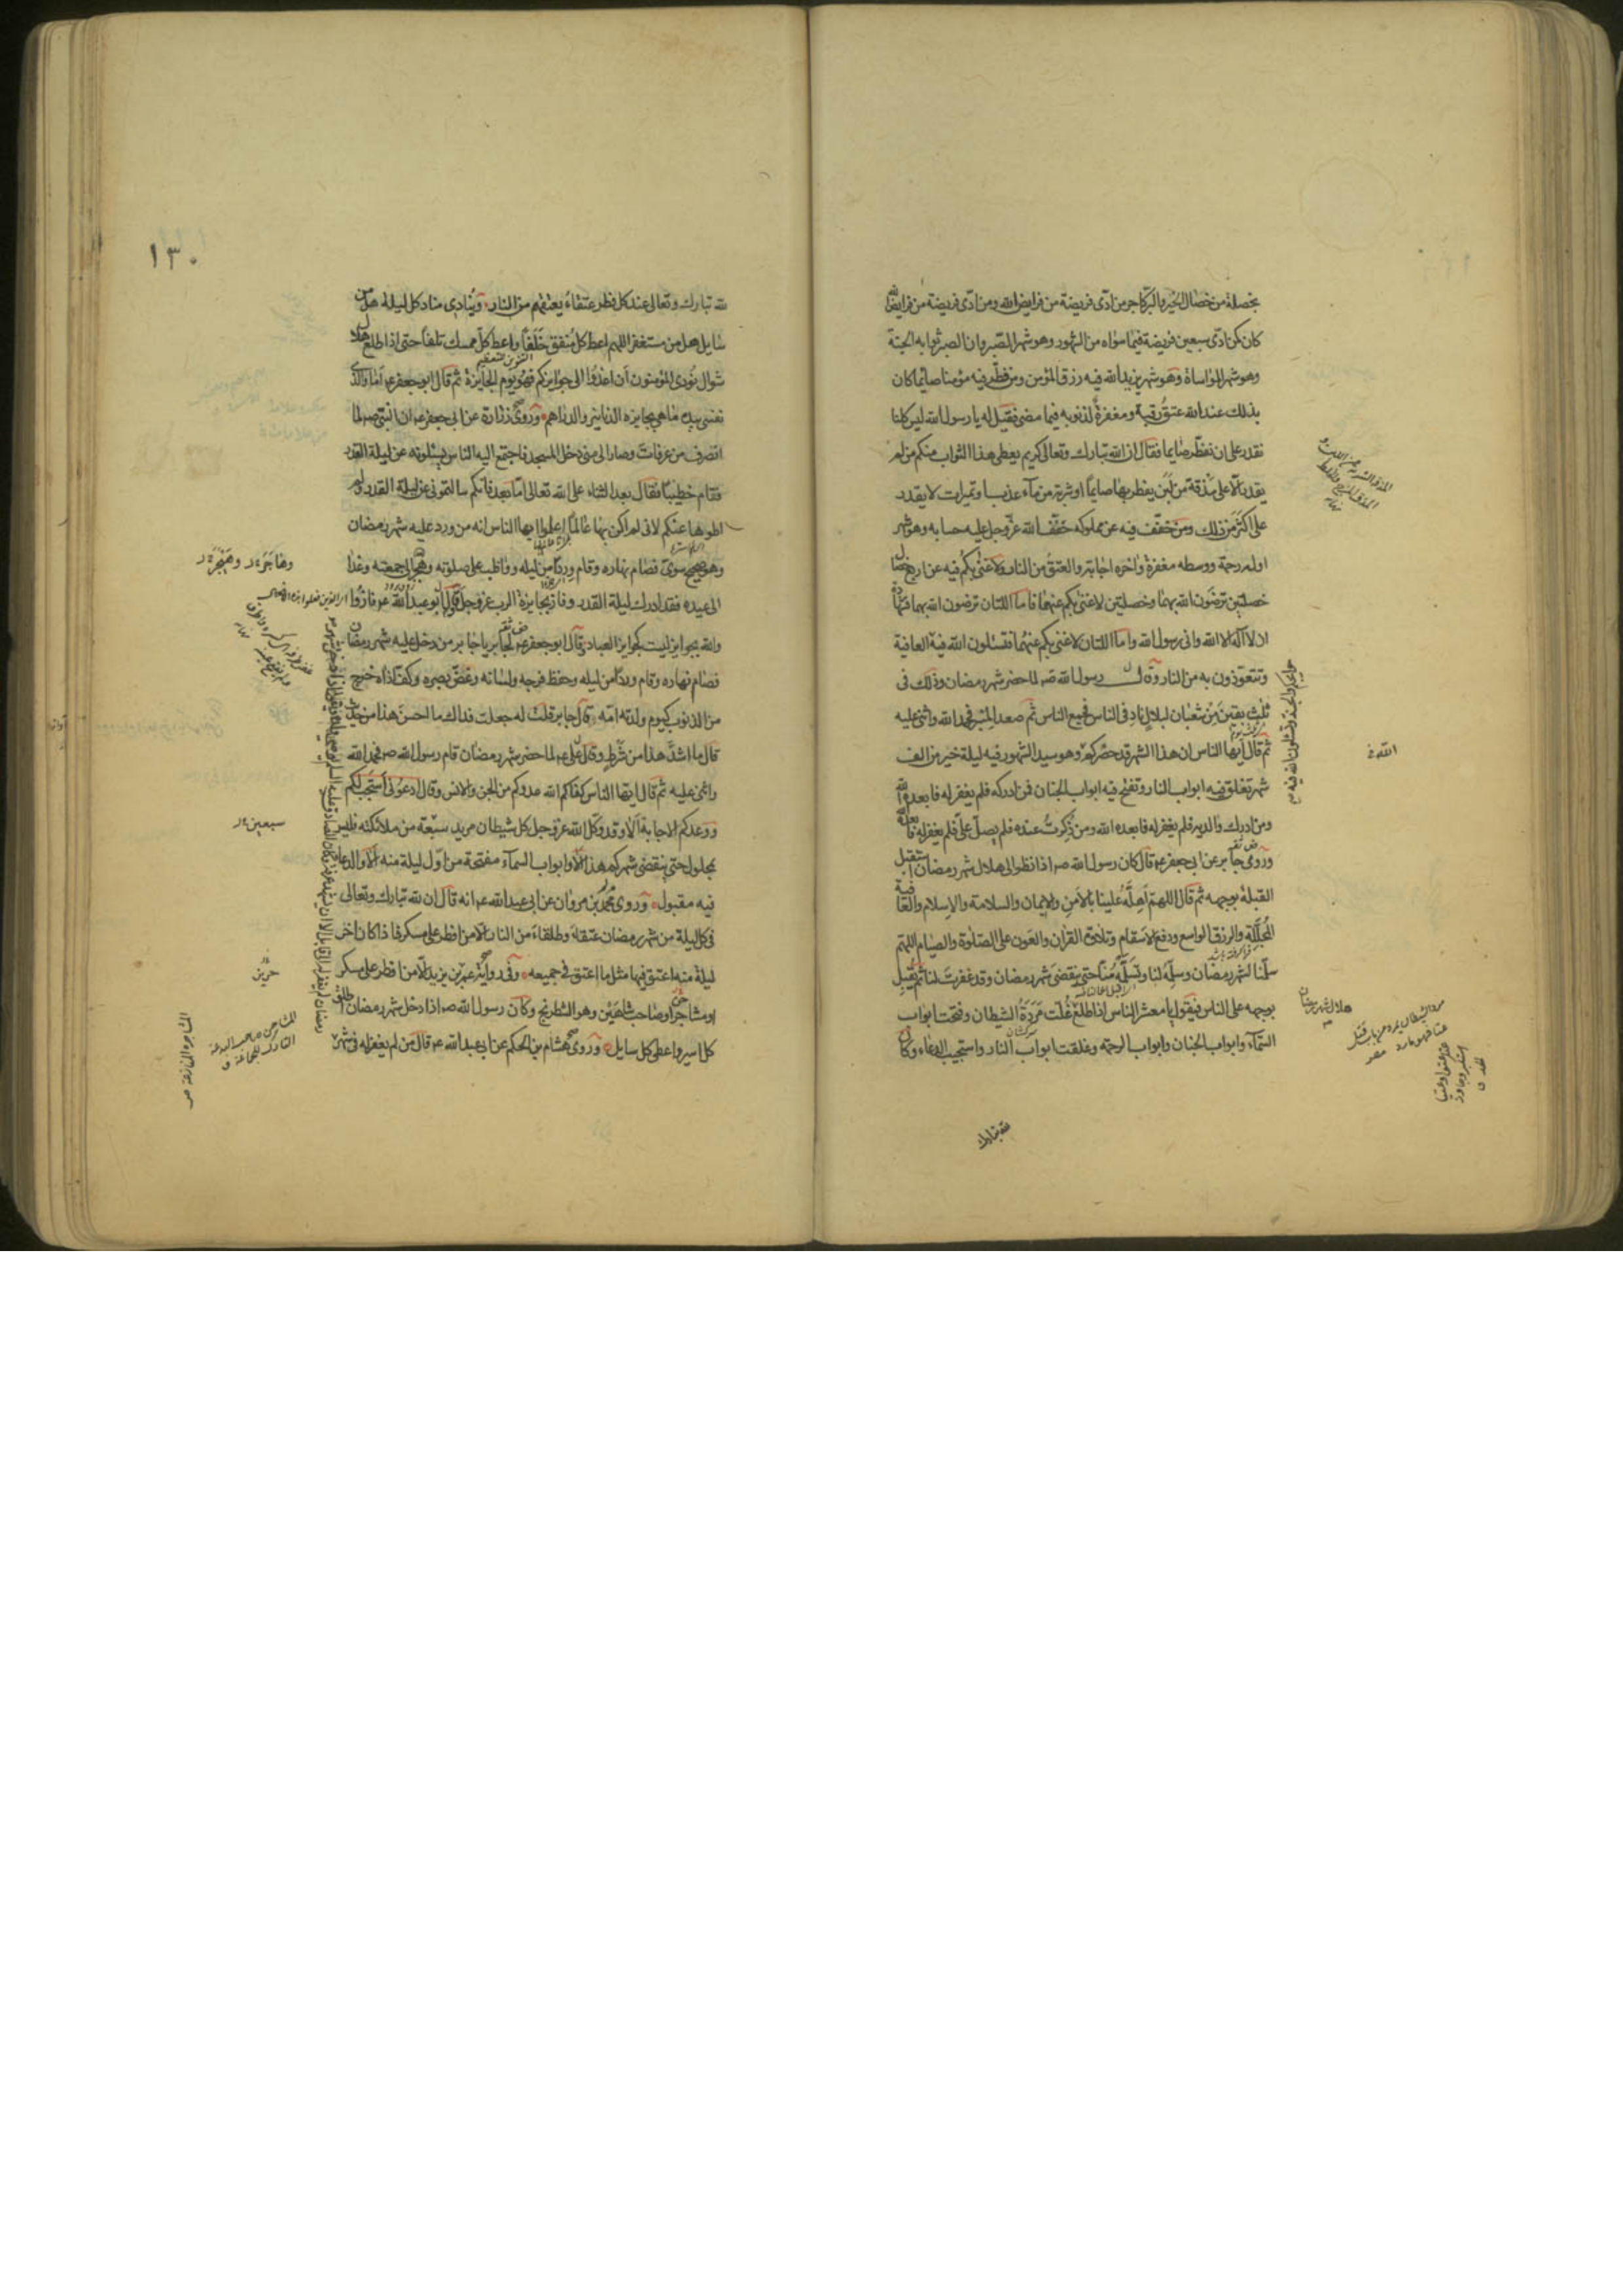 بخصلة من خصال الخير والبر كاجر من ادى فريضة من فرايض الله ومن ادى فريضة من فرايض الله
كان كمن ادى سبعين فريضة فيما سواه من الشهور وهو شهر الصبر وان الصبر ثوابه الجنة
وهو شهر المواساة وهو شهر يزيد الله فيه رزق المؤمن ومن فطر فيه مؤمنا صائما كان
بذلك عند الله عتق رقبة ومغفرة لذنوبه فيما مضى فقيل له يا رسول الله ليس كلنا
نقدر على ان نفطر صايما فقال ان الله تبارك وتعالى كريم يعطى هذا الثواب منكم من لم
يقدر الا على مذقة من لبن يفطر بها صايما او شربة من مآء عذب او تميرات لا يقدر
على اكثر من ذلك ومن خفف فيه عن مملوكه خفف الله عز وجل عليه حسابه وهو شهر
اوله رحمة ووسطه مغفرة واخره اجابة والعتق من النار ولا غنى بكم فيه عن اربع خصال
خصلتين ترضون الله بهما وخصلتين لا غنى بكم عنهما فاما اللتان ترضون الله بهما فشهادة
ان لا اله الا الله وانى رسول الله واما اللتان لا غنى بكم عنهما فتسئلون الله فيه العافية
وتتعوذون به من النار وقال رسول الله صم لما حضر شهر رمضان وذلك فى
ثلث بقين من شعبان لبلال ناد فى الناس فجمع الناس ثم صعد المنبر فحمد الله واثنى عليه
ثم قال ايها الناس ان هذا الشهر قد حضركم وهو سيد الشهور فيه ليلة خير من الف
شهر تغلق فيه ابواب النار وتفتح فيه ابواب الجنان فمن ادركه فلم يغفر له فابعده الله
ومن ادرك والديه فلم يغفر له فابعده الله ومن ذكرت عنده فلم يصل على فلم يغفر له فابعده الله
وروى جابر عن ابى جعفر عم قال كان رسول الله صم اذا نظر الى هلال شهر رمضان استقبل
القبلة بوجهه ثم قال اللهم اهله علينا بالامن والايمان والسلامة والاسلام والعافية
المجللة والرزق الواسع ودفع الاسقام وتلاوة القران والعون على الصلوة والصيام اللهم
سلمنا لشهر رمضان وسلمه لنا وتسلمه منا حتى ينقضى شهر رمضان وقد غفرت لنا ثم يقبل
بوجهه على الناس فيقول يا معشر الناس اذا طلع غلت مردة الشيطان وفتحت ابواب
السمآء وابواب الجنان وابواب الرحمة وغلقت ابواب النار واستجيب الدعاء وكان
لله تبارك
الله فى
هلال شهر رمضان
١٣٠
لله تبارك وتعالى عند كل فطر عتقاء يعتقهم من النار وينادى مناد كل ليلة هل من
سايل هل من مستغفر اللهم اعط كل منفق خلفا واعط كل ممسك تلفا حتى اذا طلع هلال
شوال نودى المؤمنون ان اغدوا الى جوايزكم فهو يوم الجايزة ثم قال ابو جعفر عم اما والذى
نفسى بيده ما هى بجايزة الدنانير والدراهم وروى زرارة عن ابى جعفر عم ان النبى صم لما
انصرف من عرفات وصار الى منى دخل المسجد فاجتمع اليه الناس يسئلونه عن ليلة القدر
فقام خطيبا فقال بعد الثناء على الله تعالى اما بعد فانكم سالتمونى عن ليلة القدر ولم
اطوها عنكم لانى لم اكن بها عالما اعلموا ايها الناس انه من ورد عليه شهر رمضان
وهو صحيح سوى فصام نهاره وقام وردا من ليله وواظب على صلوته وهجر الى جمعته وغدا
الى عيده فقد ادرك ليلة القدر وفاز بجايزة الرب عز وجل قال ابو عبد الله عم فازوا
والله بجوايز ليست كجوايز العباد وقال ابو جعفر عم لجابر يا جابر من دخل عليه شهر رمضان
فصام نهاره وقام وردا من ليله وحفظ فرجه ولسانه وغض بصره وكف اذاه خرج
من الذنوب كيوم ولدته امه قال جابر قلت له جعلت فداك ما احسن هذا من حديث
قال ما اشد هذا من شرط وقال على عم لما حضر شهر رمضان قام رسول الله صم فحمد الله
واثنى عليه ثم قال ايها الناس كفاكم الله عدوكم من الجن والانس وقال ادعونى استجب لكم
ووعدكم الاجابة الا وقد وكل الله عز وجل بكل شيطان مريد سبعة من ملائكته فليس
بمحلول حتى ينقضى شهركم هذا الا وابواب السمآء مفتحة من اول ليلة منه الا والدعاء
فيه مقبول وروى محمد بن مروان عن ابى عبد الله عم انه قال ان لله تبارك وتعالى
فى كل ليلة من شهر رمضان عتقاء وطلقاء من النار الا من افطر على مسكر فاذا كان اخر
ليلة منه اعتق فيها مثل ما اعتق فى جميعه وفى رواية عمر بن يزيد الا من افطر على مسكر
او مشاحن او صاحب شاهين وهو الشطرنج وكان رسول الله صم اذا دخل شهر رمضان اطلق
كل اسير واعطى كل سايل وروى هشام بن الحكم عن ابى عبد الله عم قال من لم يغفر له فى شهر
سبعين